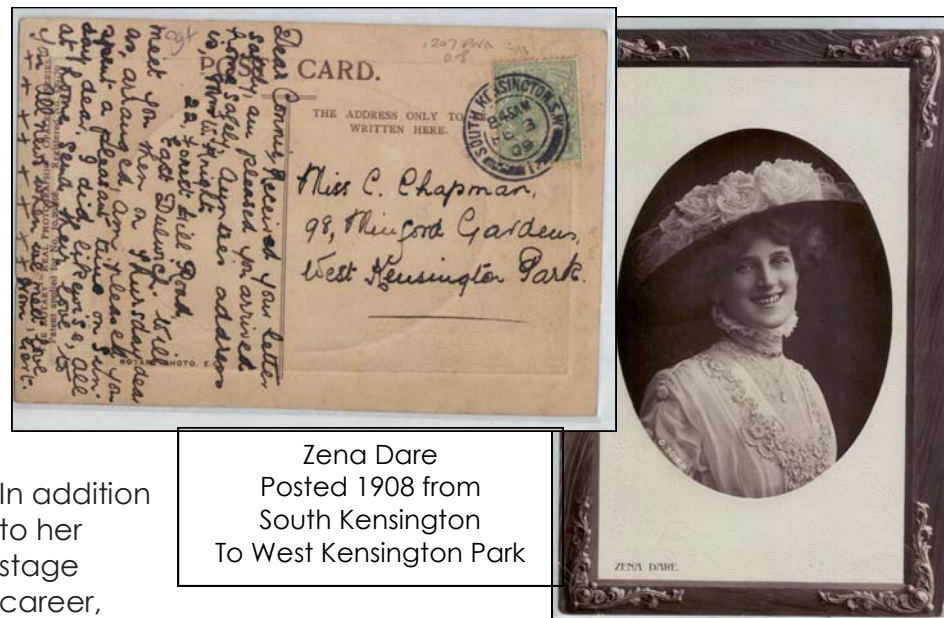 POST CARD.
THE ADDRESS ONLY TO BE
WRITTEN HERE.
SOUTH KENSINGTON. S.W
Miss C. Chapman,
98, Mingord Gardens,
West Kensington Park.
Dear Connie, Received your letter
safely, am pleased you arrived
home safely, Agnses address
is, Knight
22, Forest Hill Road,
East Dulwich. Will
meet you then on Thursday dear
as, arranged, am pleased you
spent a pleasant time on Sun
day dear, I did likewise, All
at home send their love to
you all
ROTARY PHOTO, E.C.
ZENA DARE.
Zena Dare
Posted 1908 from
South Kensington
To West Kensington Park
In addition
to her
stage
career,